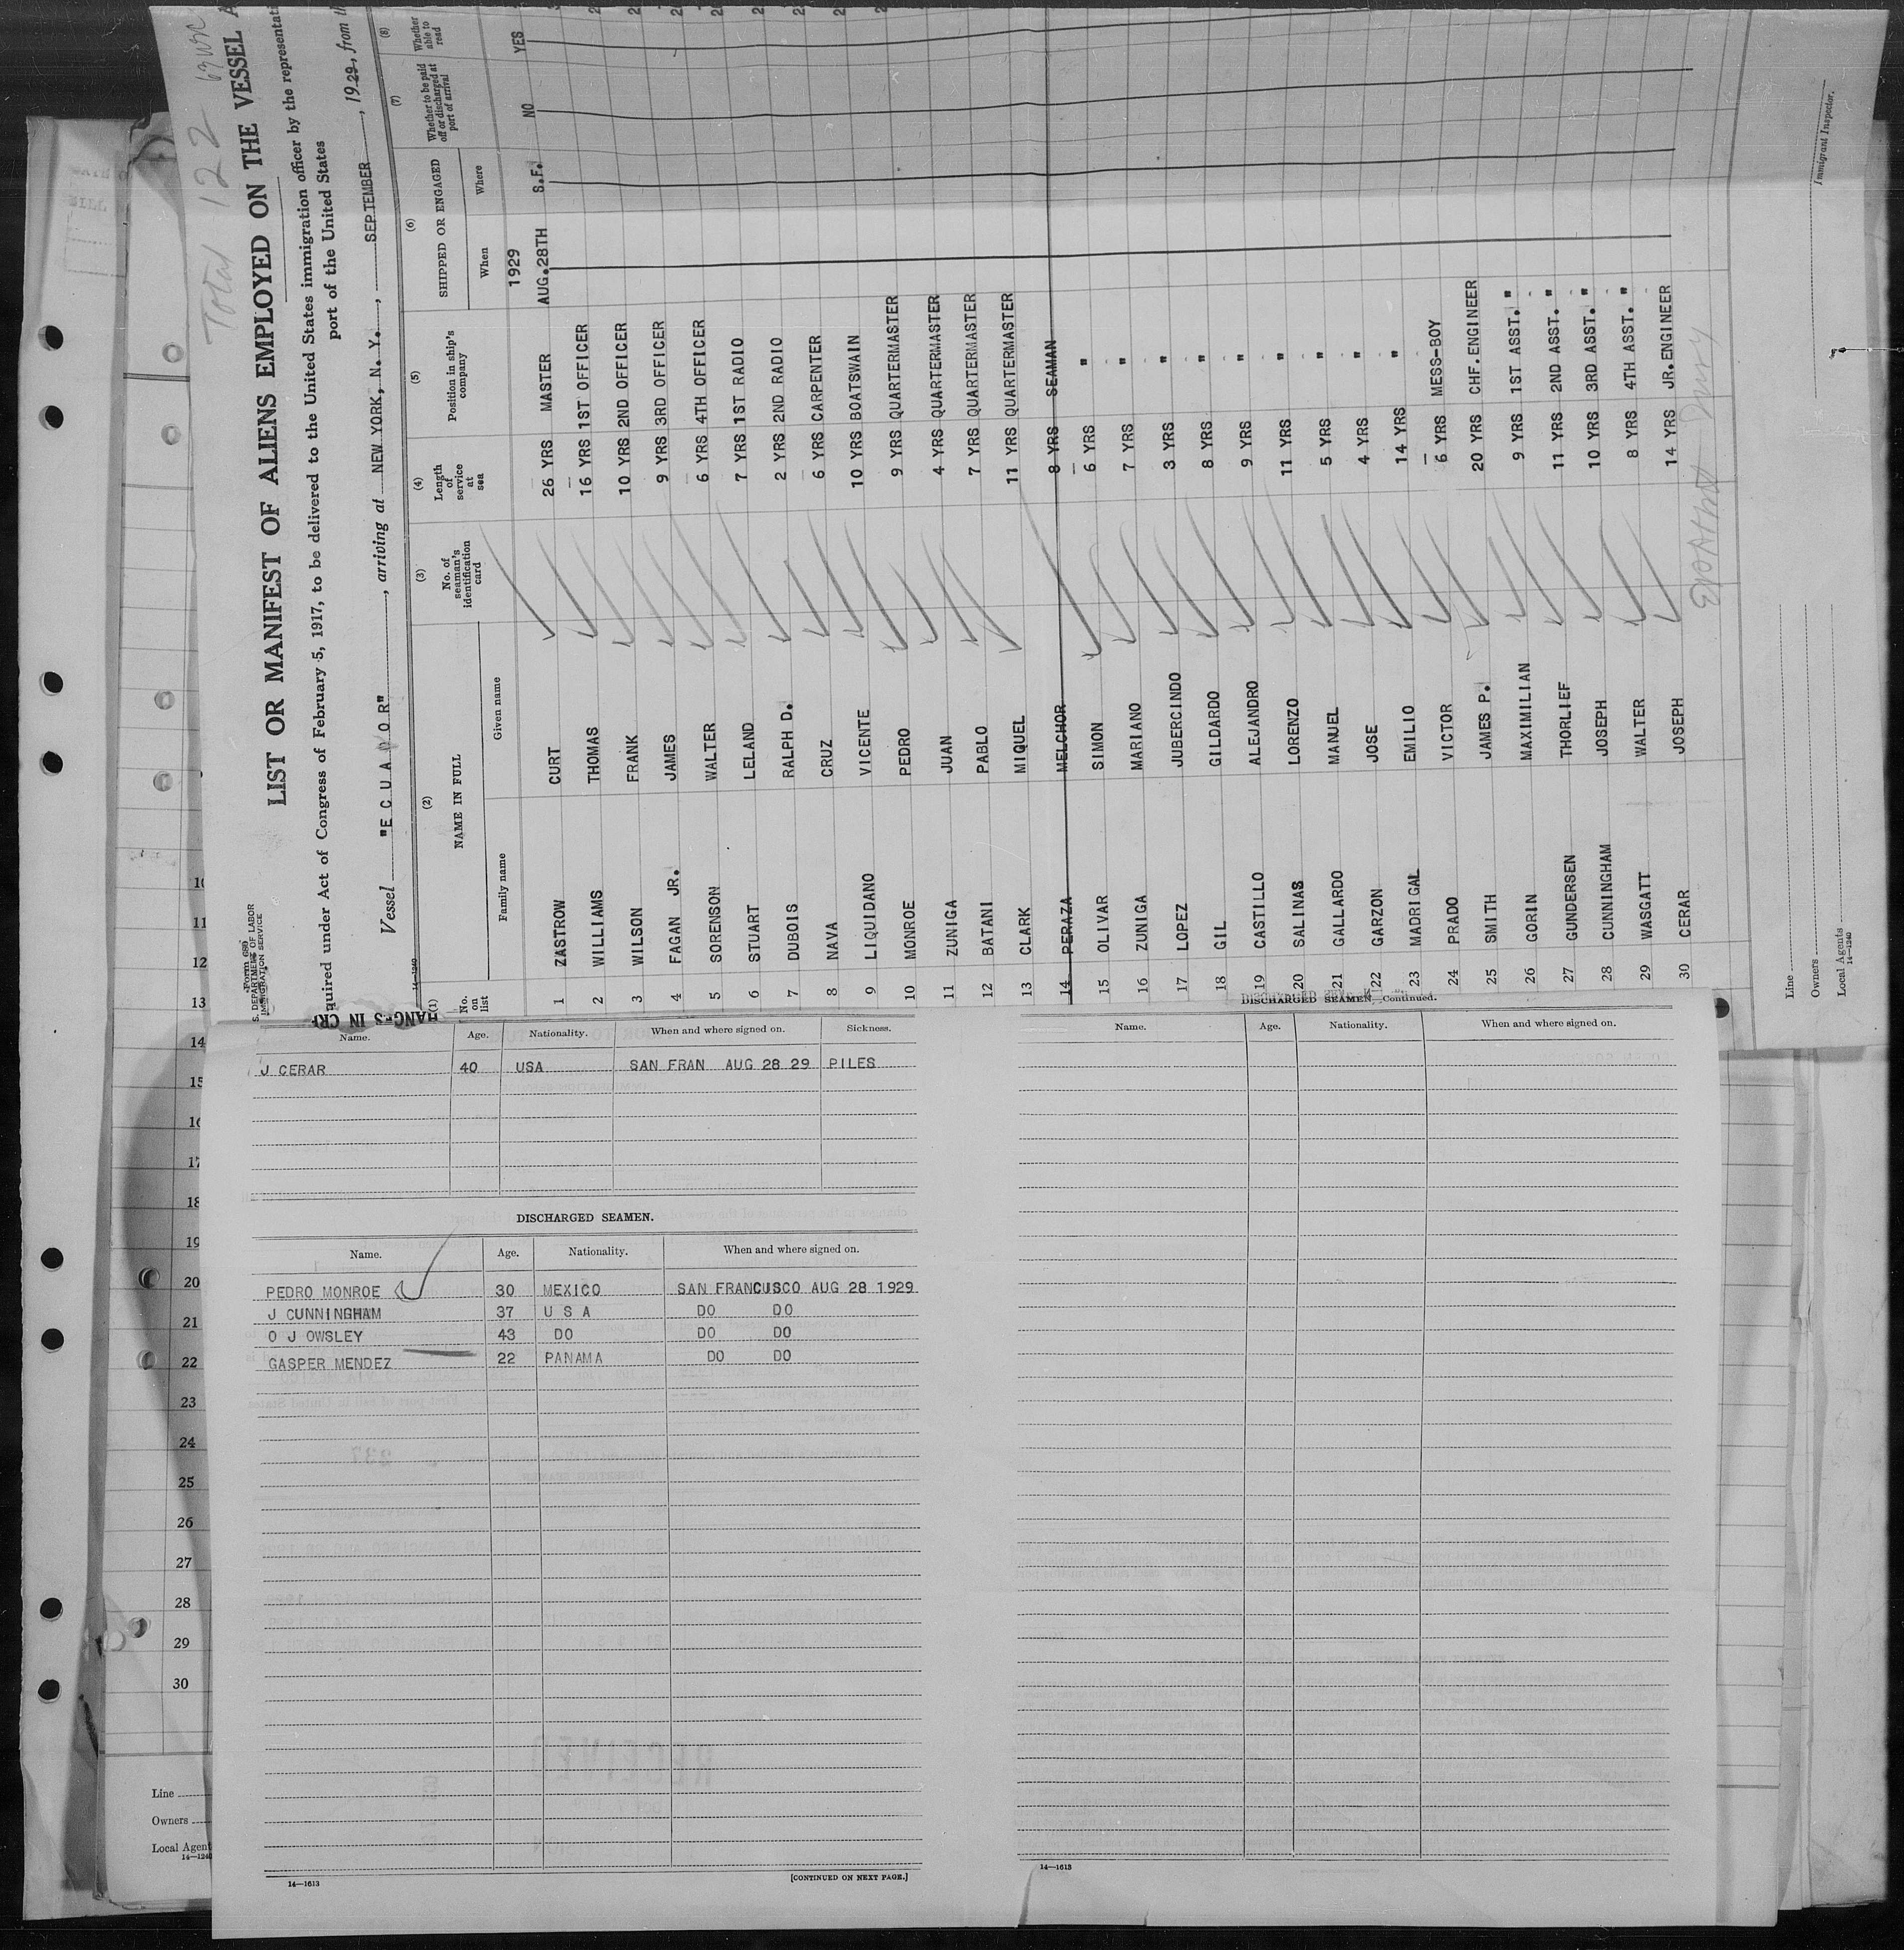 Total 122
LIST OR MANIFEST OF ALIENS EMPLOYED ON THE VESSEL
Form 680
S. DEPARTMENT OF LABOR
IMMIGRATION SERVICE
quired under Act of Congress of February 5, 1917, to be delivered to the United States immigration officer by the representati
port of the United States
Vessel "E C U A D O R", arriving at NEW YORK, N. Y., SEPTEMBER, 1929, from th
14—1240
(1) (2) (3) (4) (5) (6) (7) (8)
No. on list
NAME IN FULL
Family name Given name
No. of seaman's identification card
Length of service at sea
Position in ship's company
SHIPPED OR ENGAGED
When Where
Whether to be paid off or discharged at port of arrival
Whether able to read
1929
1 ZASTROW CURT 26 YRS MASTER AUG.28TH S.F. NO YES
2 WILLIAMS THOMAS 16 YRS 1ST OFFICER
3 WILSON FRANK 10 YRS 2ND OFFICER
4 FAGAN JR. JAMES 9 YRS 3RD OFFICER
5 SORENSON WALTER 6 YRS 4TH OFFICER
6 STUART LELAND 7 YRS 1ST RADIO
7 DUBOIS RALPH D. 2 YRS 2ND RADIO
8 NAVA CRUZ 6 YRS CARPENTER
9 LIQUIDANO VICENTE 10 YRS BOATSWAIN
10 MONROE PEDRO 9 YRS QUARTERMASTER
11 ZUNIGA JUAN 4 YRS QUARTERMASTER
12 BATANI PABLO 7 YRS QUARTERMASTER
13 CLARK MIQUEL 11 YRS QUARTERMASTER
14 PERAZA MELCHOR 8 YRS SEAMAN
15 OLIVAR SIMON 6 YRS "
16 ZUNIGA MARIANO 7 YRS "
17 LOPEZ JUBERCINDO 3 YRS "
18 GIL GILDARDO 8 YRS "
19 CASTILLO ALEJANDRO 9 YRS "
20 SALINAS LORENZO 11 YRS "
21 GALLARDO MANUEL 5 YRS "
22 GARZON JOSE 4 YRS "
23 MADRIGAL EMILIO 14 YRS "
24 PRADO VICTOR 6 YRS MESS-BOY
25 SMITH JAMES P. 20 YRS CHF.ENGINEER
26 GORIN MAXIMILIAN 9 YRS 1ST ASST. "
27 GUNDERSEN THORLIEF 11 YRS 2ND ASST. "
28 CUNNINGHAM JOSEPH 10 YRS 3RD ASST. "
29 WASGATT WALTER 8 YRS 4TH ASST. "
30 CERAR JOSEPH 14 YRS JR.ENGINEER
Line
Owners
Local Agents
14—1240
Immigrant Inspector.
Name. Age. Nationality. When and where signed on. Sickness.
J CERAR 40 USA SAN FRAN AUG 28 29 PILES
DISCHARGED SEAMEN.
Name. Age. Nationality. When and where signed on.
PEDRO MONROE 30 MEXICO SAN FRANCISCO AUG 28 1929
J CUNNINGHAM 37 U S A DO DO
O J OWSLEY 43 DO DO DO
GASPER MENDEZ 22 PANAMA DO DO
14—1613
[CONTINUED ON NEXT PAGE.]
DISCHARGED SEAMEN, Continued.
Name. Age. Nationality. When and where signed on.
14—1613
10
11
12
13
14
15
16
17
18
19
20
21
22
23
24
25
26
27
28
29
30
Line
Owners
Local Agent
14—1240